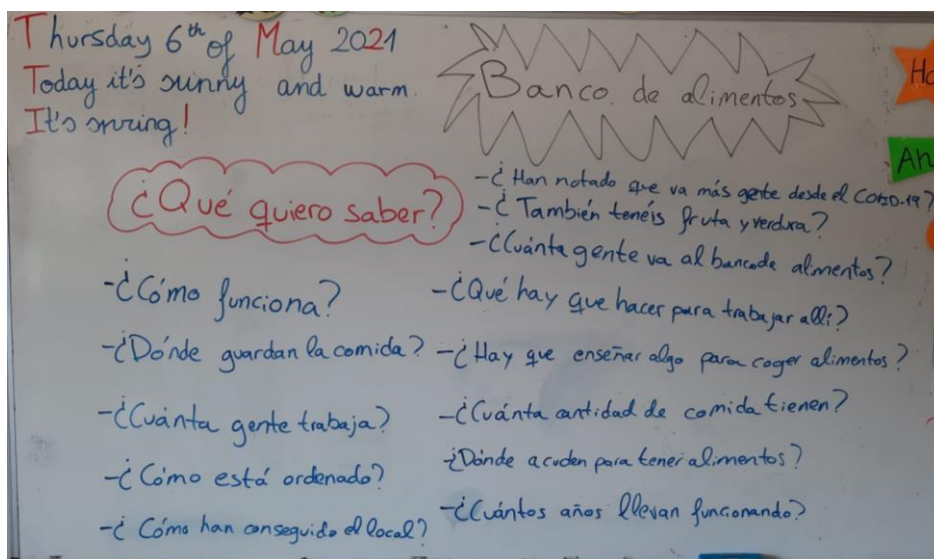 Thursday 6th of May 2021
Today it's sunny and warm.
It's spring!
Banco de alimentos
¿Qué quiero saber?
-¿Cómo funciona?
-¿Dónde guardan la comida?
-¿Cuánta gente trabaja?
-¿Cómo está ordenado?
-¿Cómo han conseguido el local?
-¿Han notado que va más gente desde el COVID-19?
-¿También tenéis fruta y verdura?
-¿Cuánta gente va al banco de alimentos?
-¿Qué hay que hacer para trabajar allí?
-¿Hay que enseñar algo para coger alimentos?
-¿Cuánta cantidad de comida tienen?
-¿Dónde acuden para tener alimentos?
-¿Cuántos años llevan funcionando?